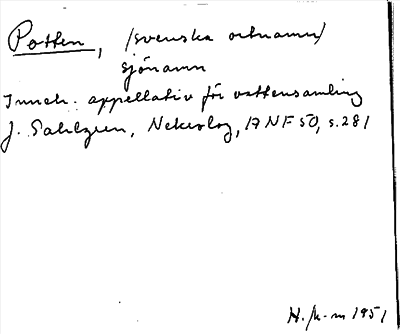 Potten, (svenska ortnamn)
sjönamn
Inneh. appellativ för vattensamling
J. Sahlgren, Nekrolog, ANF 50, s. 281
H. M-m 1951